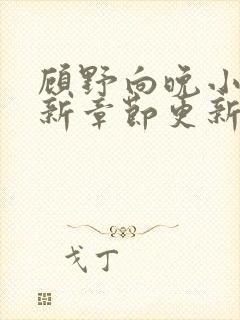 顾野向晚小
新章节更新
戈丁